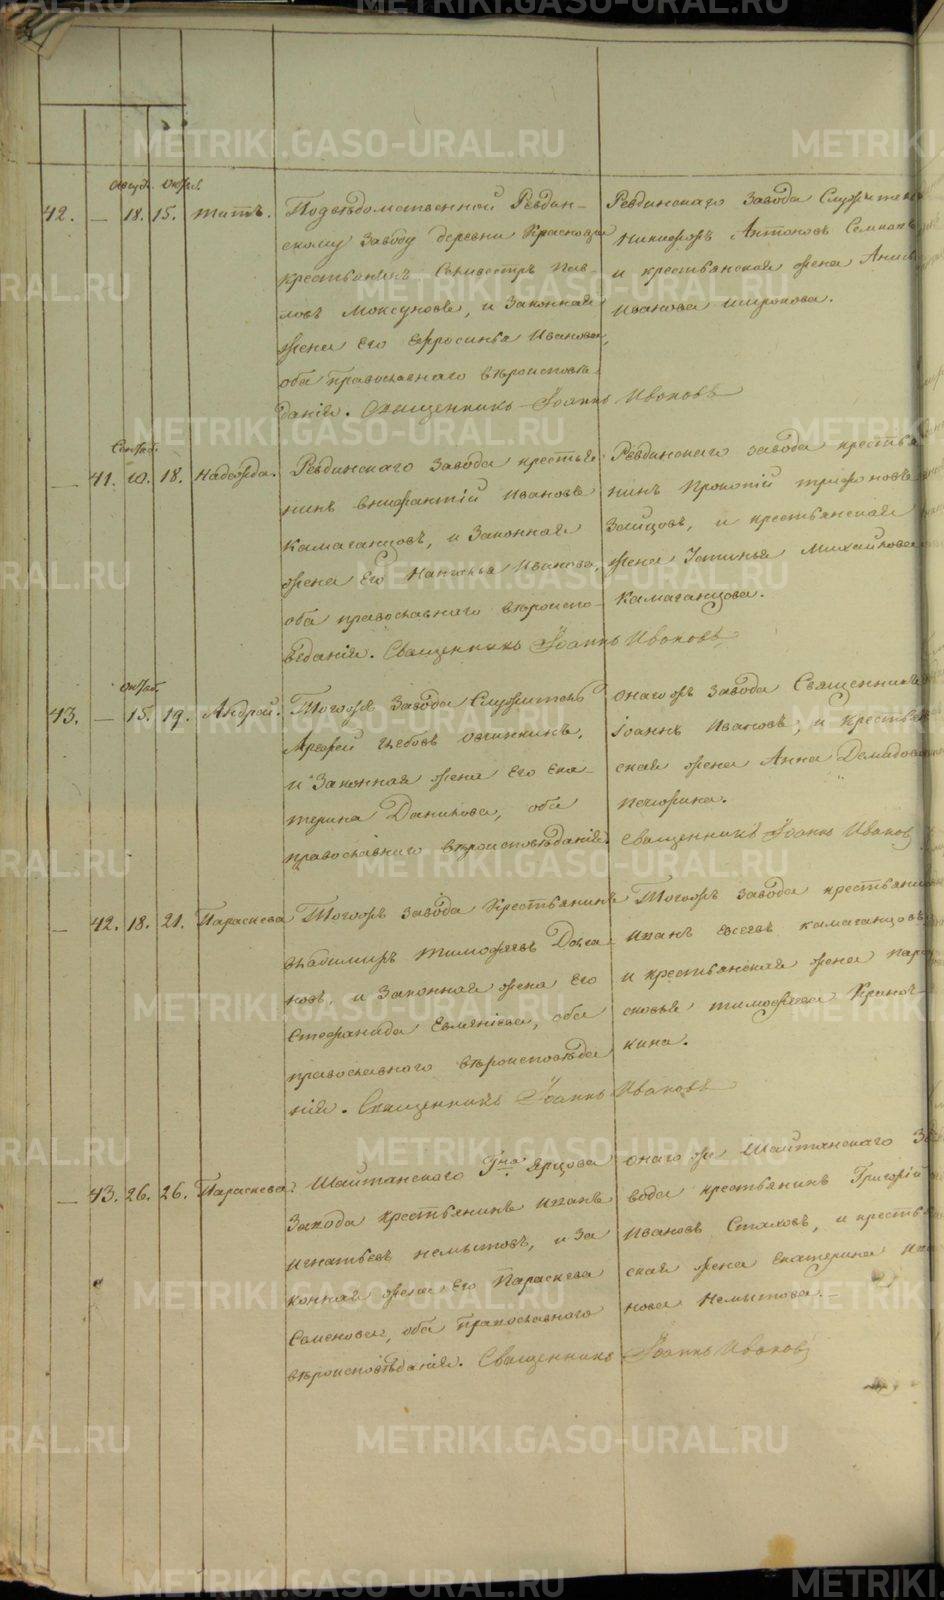 METRIKI.GASO-URAL.RU
Август. Октяб.
42. — 18. 15. Титъ.
Подвѣдомственной Ревдин-
скому Заводу деревни Краснояра
крестьянинъ Силивестръ Пав-
ловъ Моксуновъ, и Законная
жена Его Ефросинья Иванова,
оба православнаго вѣроисповѣ-
данія. Священникъ Іоаннъ Ивановъ
Ревдинскаго Завода Служитель
Никифоръ Антоновъ
и крестьянская жена
Иванова Широкова.
Сентяб.
— 41. 10. 18. Надежда.
Ревдинскаго Завода крестья-
нинъ Внифантій Ивановъ
Камаганцовъ, и Законная
жена Его Наталья Иванова,
оба православнаго вѣроиспо-
вѣданія. Священникъ Іоаннъ Ивановъ
Ревдинскаго Завода крестья
нинъ Прокопій Трифоновъ
Зайцовъ, и крестьянская
жена Устинья Михайлова
Камаганцова.
Октяб.
43. — 15. 19. Андрей.
Тогожъ Завода Служитель
Арефей Глебовъ Овчинкинъ,
и Законная жена Его Ека-
терина Данилова, оба
православнаго вѣроисповѣданія
Онагожъ Завода Священникъ
Іоаннъ Ивановъ, и крестьян
ская жена Анна Демидова
Печорина.
Священникъ Іоаннъ Ивановъ
— 42. 18. 21. Параскева
Тогожъ Завода Крестьянинъ
Владимиръ Тимофеевъ Долга
новъ, и Законная жена Его
Стефанида Евменіева, оба
православнаго вѣроисповѣда
нія. Священникъ Іоаннъ Ивановъ
Тогожъ Завода крестьянинъ
Иванъ Евсеевъ Камаганцовъ
и крестьянская жена Пара
сковья Тимофеева
кина.
— 43. 26. 26. Параскева.
Шайтанскаго Гна Ярцова
Завода Крестьянинъ Иванъ
Игнатьевъ Немытовъ, и За
конная жена Его Параскева
Семенова, оба Православнаго
вѣроисповѣданія. Священникъ Іоаннъ Ивановъ
Онаго же Шайтанскаго За
вода крестьянинъ Григорій
Ивановъ Стаховъ, и крестьян
ская жена Екатерина Ива
нова Немытова.